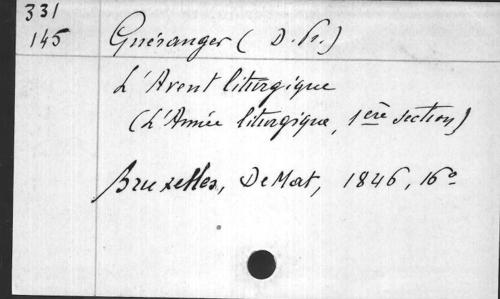 331
145
Guéranger ( D. Pr.)
L'Avent liturgique
(L'Année liturgique, 1ère section)
Bruxelles, De Mat, 1846, 16º